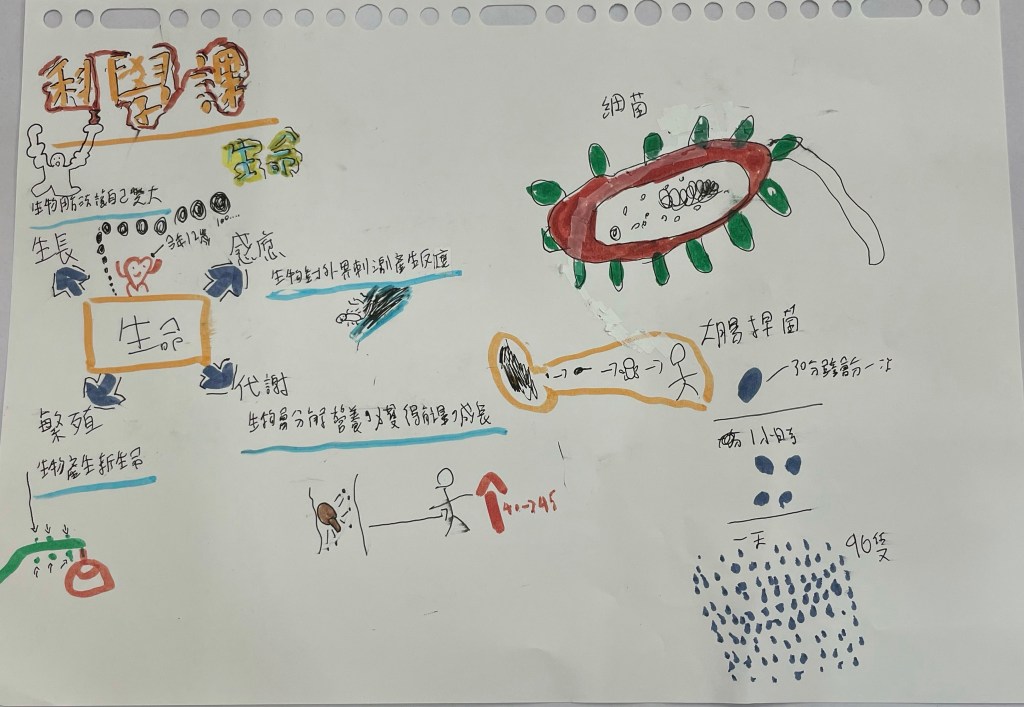 科學課
生命
生物能讓自己變大
100....
生長
今年12歲
感應
生物對外界刺激產生反應
生命
繁殖
生物產生新生命
代謝
生物會分解營養，獲得能量，成長
細菌
大腸桿菌
30分鐘會分一次
1小時
一天
96隻